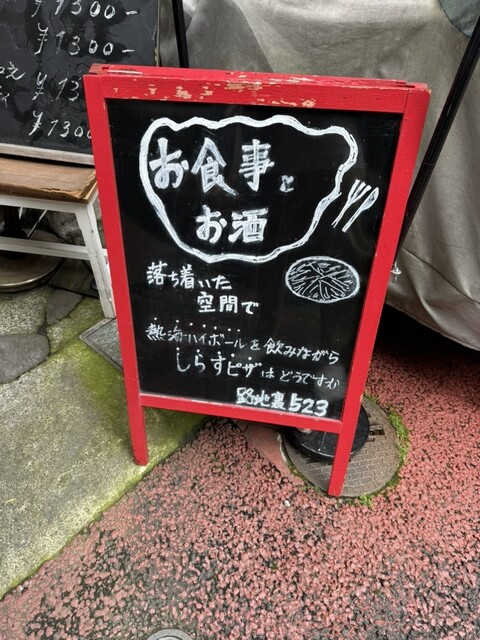 ¥1300-
¥1300-
¥1300
お食事と
お酒
落ち着いた
空間で
熱海ハイボールを飲みながら
しらすピザはどうですか
路地裏523